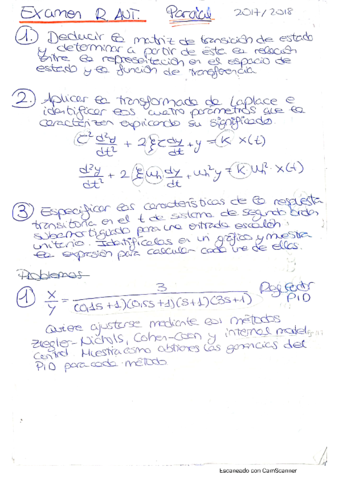 Examen R. AUT. Parcial 2017/2018
1. Deducir la matriz de transición de estado
y determinar a partir de ésta la relación
entre la representación en el espacio de
estado y la función de transferencia.
2. Aplicar la transformada de Laplace e
identificar los cuatro parámetros que la
caracterizan explicando su significado
τ² d²y/dt² + 2ξτ dy/dt + y = K X(t)
d²y/dt² + 2ξωn dy/dt + ωn² y = K ωn² X(t)
3. Especificar las características de la respuesta
transitoria en el t de sistema de segundo orden
subamortiguado para una entrada escalón
unitario. Identifícalas en un gráfico y muestra
la expresión para calcular cada una de ellas.
Problemas
1 X/Y = 3/(0,1s+1)(0,5s+1)(s+1)(3s+1) PID
Quiere ajustarse mediante los métodos
Ziegler-Nichols, Cohen-Coon y internal model
Control. Muestra como obtienes las ganancias del
PID para cada método.
Escaneado con CamScanner